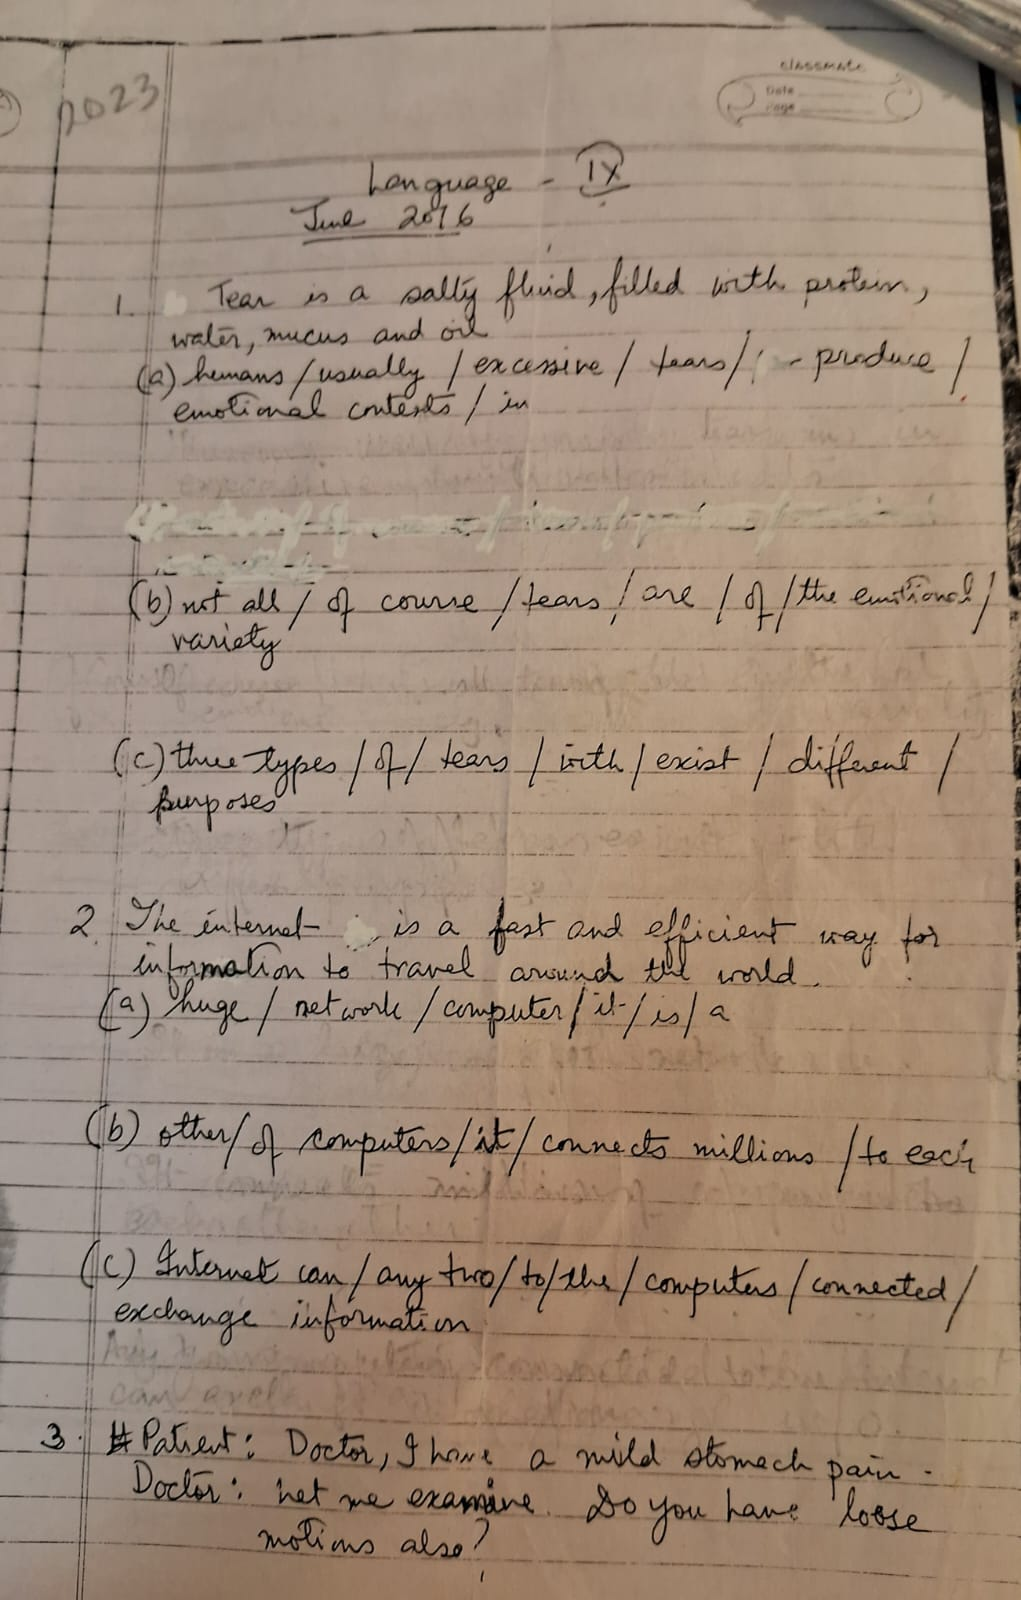 classmate
Date
Page
2023
Language - IX
June 2016
1. Tear is a salty fluid, filled with protein,
water, mucus and oil
(a) humans / usually / excessive / tears / produce /
emotional contexts / in
(b) not all / of course / tears / are / of / the emotional /
variety
(c) three types / of / tears / with / exist / different /
purposes
2. The internet is a fast and efficient way for
information to travel around the world.
(a) huge / network / computer / it / is / a
(b) other / of computers / it / connects millions / to each
(c) Internet can / any two / to / the / computers / connected /
exchange information
3. Patient: Doctor, I have a mild stomach pain.
Doctor: Let me examine. Do you have loose
motions also?